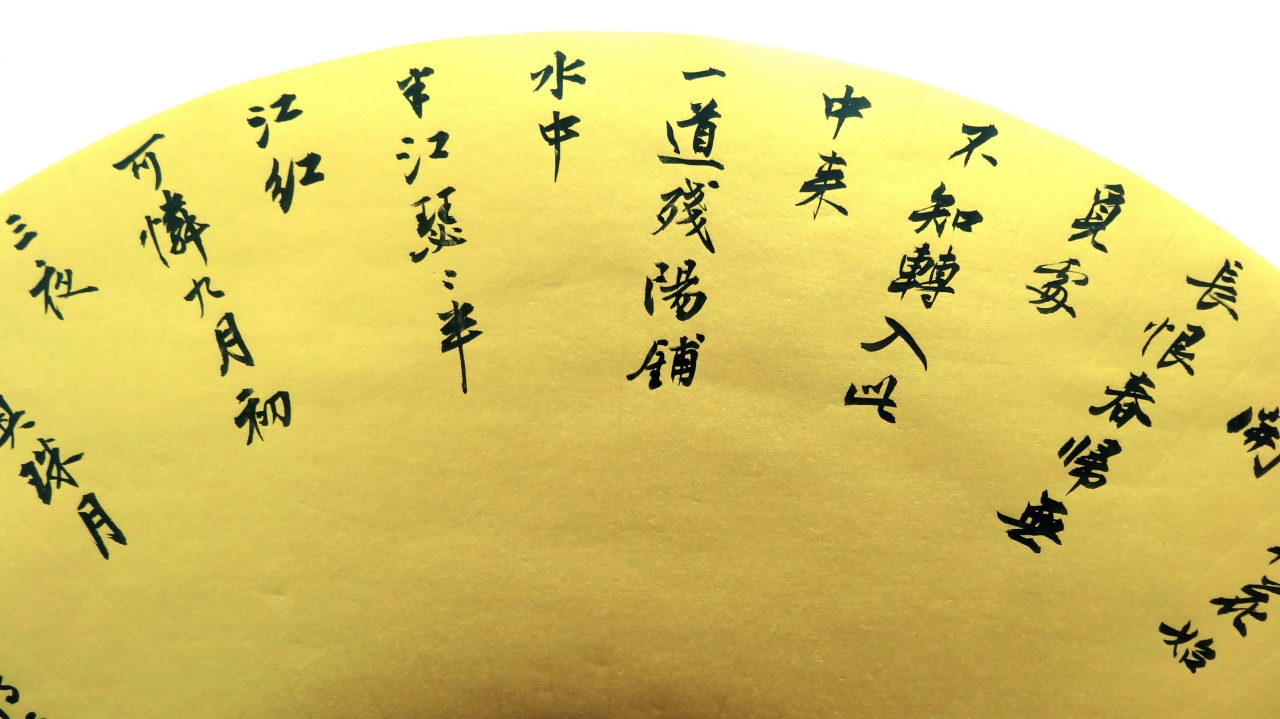 花始
開
長恨春帰無
覓處
不知轉入此
中来
一道殘陽鋪
水中
半江瑟〻半
江紅
可憐九月初
三夜
真珠月